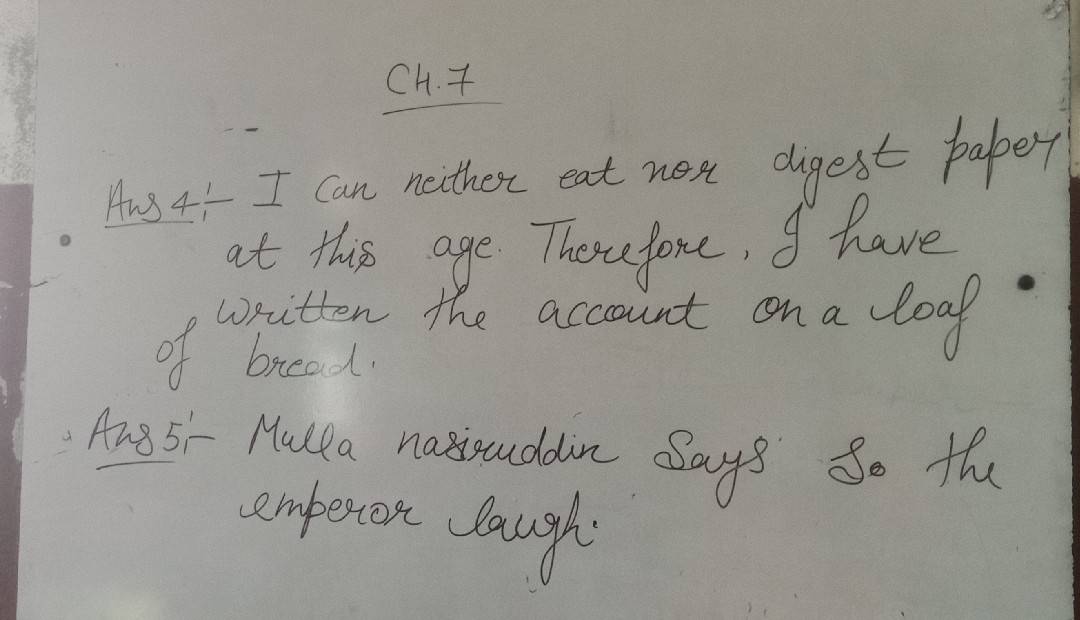 CH.7
Ans 4:- I Can neither eat nor digest paper
at this age. Therefore, I have
written the account on a loaf
of bread.
Ans 5:- Mulla nasiruddin Says So the
emperor laugh.